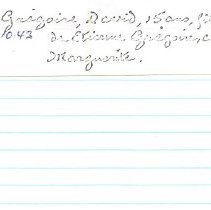 Grégoire, David, 15 ans, fil
1043 de Étienne Grégoire, c
Marguerite.